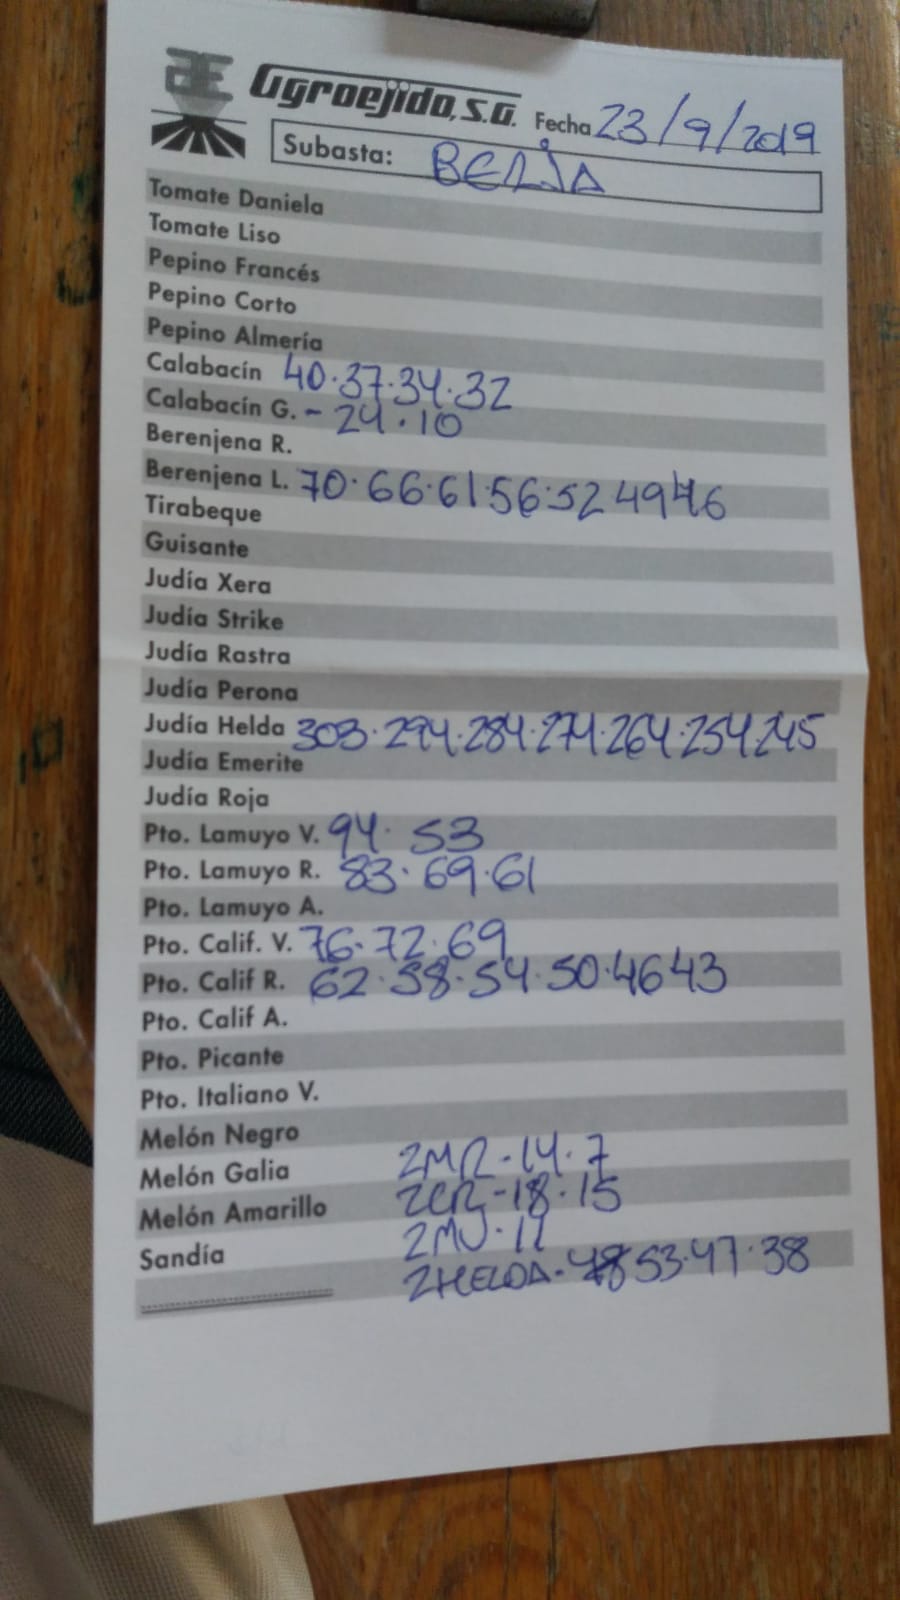 Agroejido, S.A. Fecha 23/9/2019
Subasta: BERJA
Tomate Daniela
Tomate Liso
Pepino Francés
Pepino Corto
Pepino Almería
Calabacín 40·37·34·32
Calabacín G. - 24·10
Berenjena R.
Berenjena L. 70·66·61·56·52 49 46
Tirabeque
Guisante
Judía Xera
Judía Strike
Judía Rastra
Judía Perona
Judía Helda 303·294·284·274·264·254·245
Judía Emerite
Judía Roja
Pto. Lamuyo V. 94· 53
Pto. Lamuyo R. 83·69·61
Pto. Lamuyo A.
Pto. Calif. V. 76·72·69
Pto. Calif R. 62·58·54·50·46 43
Pto. Calif A.
Pto. Picante
Pto. Italiano V.
Melón Negro
Melón Galia 2MR-14·7
Melón Amarillo 2CR-18·15
Sandía 2MV·11
2HELDA· 53·47·38